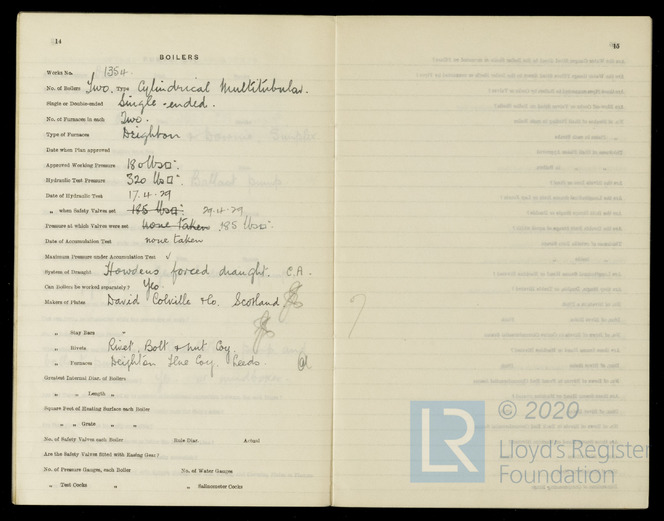 14
BOILERS
Works No. 1354.
No. of Boilers Two. TYPE Cylindrical Multitubular.
Single or Double-ended Single-ended.
No. of Furnaces in each Two.
Type of Furnaces Deighton
Date when Plan approved
Approved Working Pressure 180 lbs□"
Hydraulic Test Pressure 320 lbs□"
Date of Hydraulic Test 17.4.29
„ when Safety Valves set 185 lbs□" 29.4.29
Pressure at which Valves were set none taken 185 lbs□"
Date of Accumulation Test none taken
Maximum Pressure under Accumulation Test ✓
System of Draught Howdens forced draught. C.A.
Can Boilers be worked separately? Yes.
Makers of Plates David Colville & Co. Scotland
„ Stay Bars „
„ Rivets Rivet, Bolt & Nut Coy.
„ Furnaces Deighton Flue Coy, Leeds.
Greatest Internal Diar. of Boilers
„ „ Length „
Square Feet of Heating Surface each Boiler
„ „ Grate „ „
No. of Safety Valves each Boiler Rule Diar. Actual
Are the Safety Valves fitted with Easing Gear?
No. of Pressure Gauges, each Boiler No. of Water Gauges
„ Test Cocks „ „ Salinometer Cocks
15
LR © 2020
Lloyd's Register
Foundation